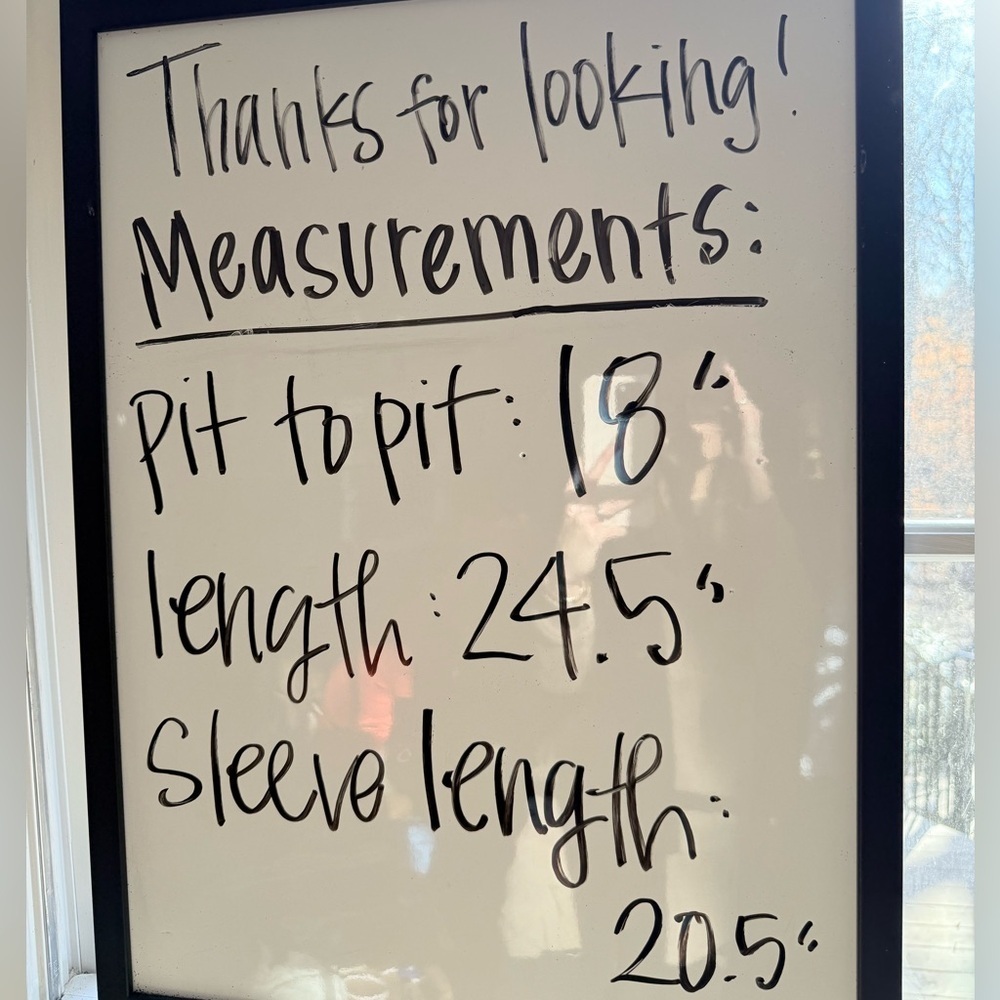 Thanks for looking!
Measurements:
Pit to pit: 18"
length: 24.5"
Sleeve length:
20.5"